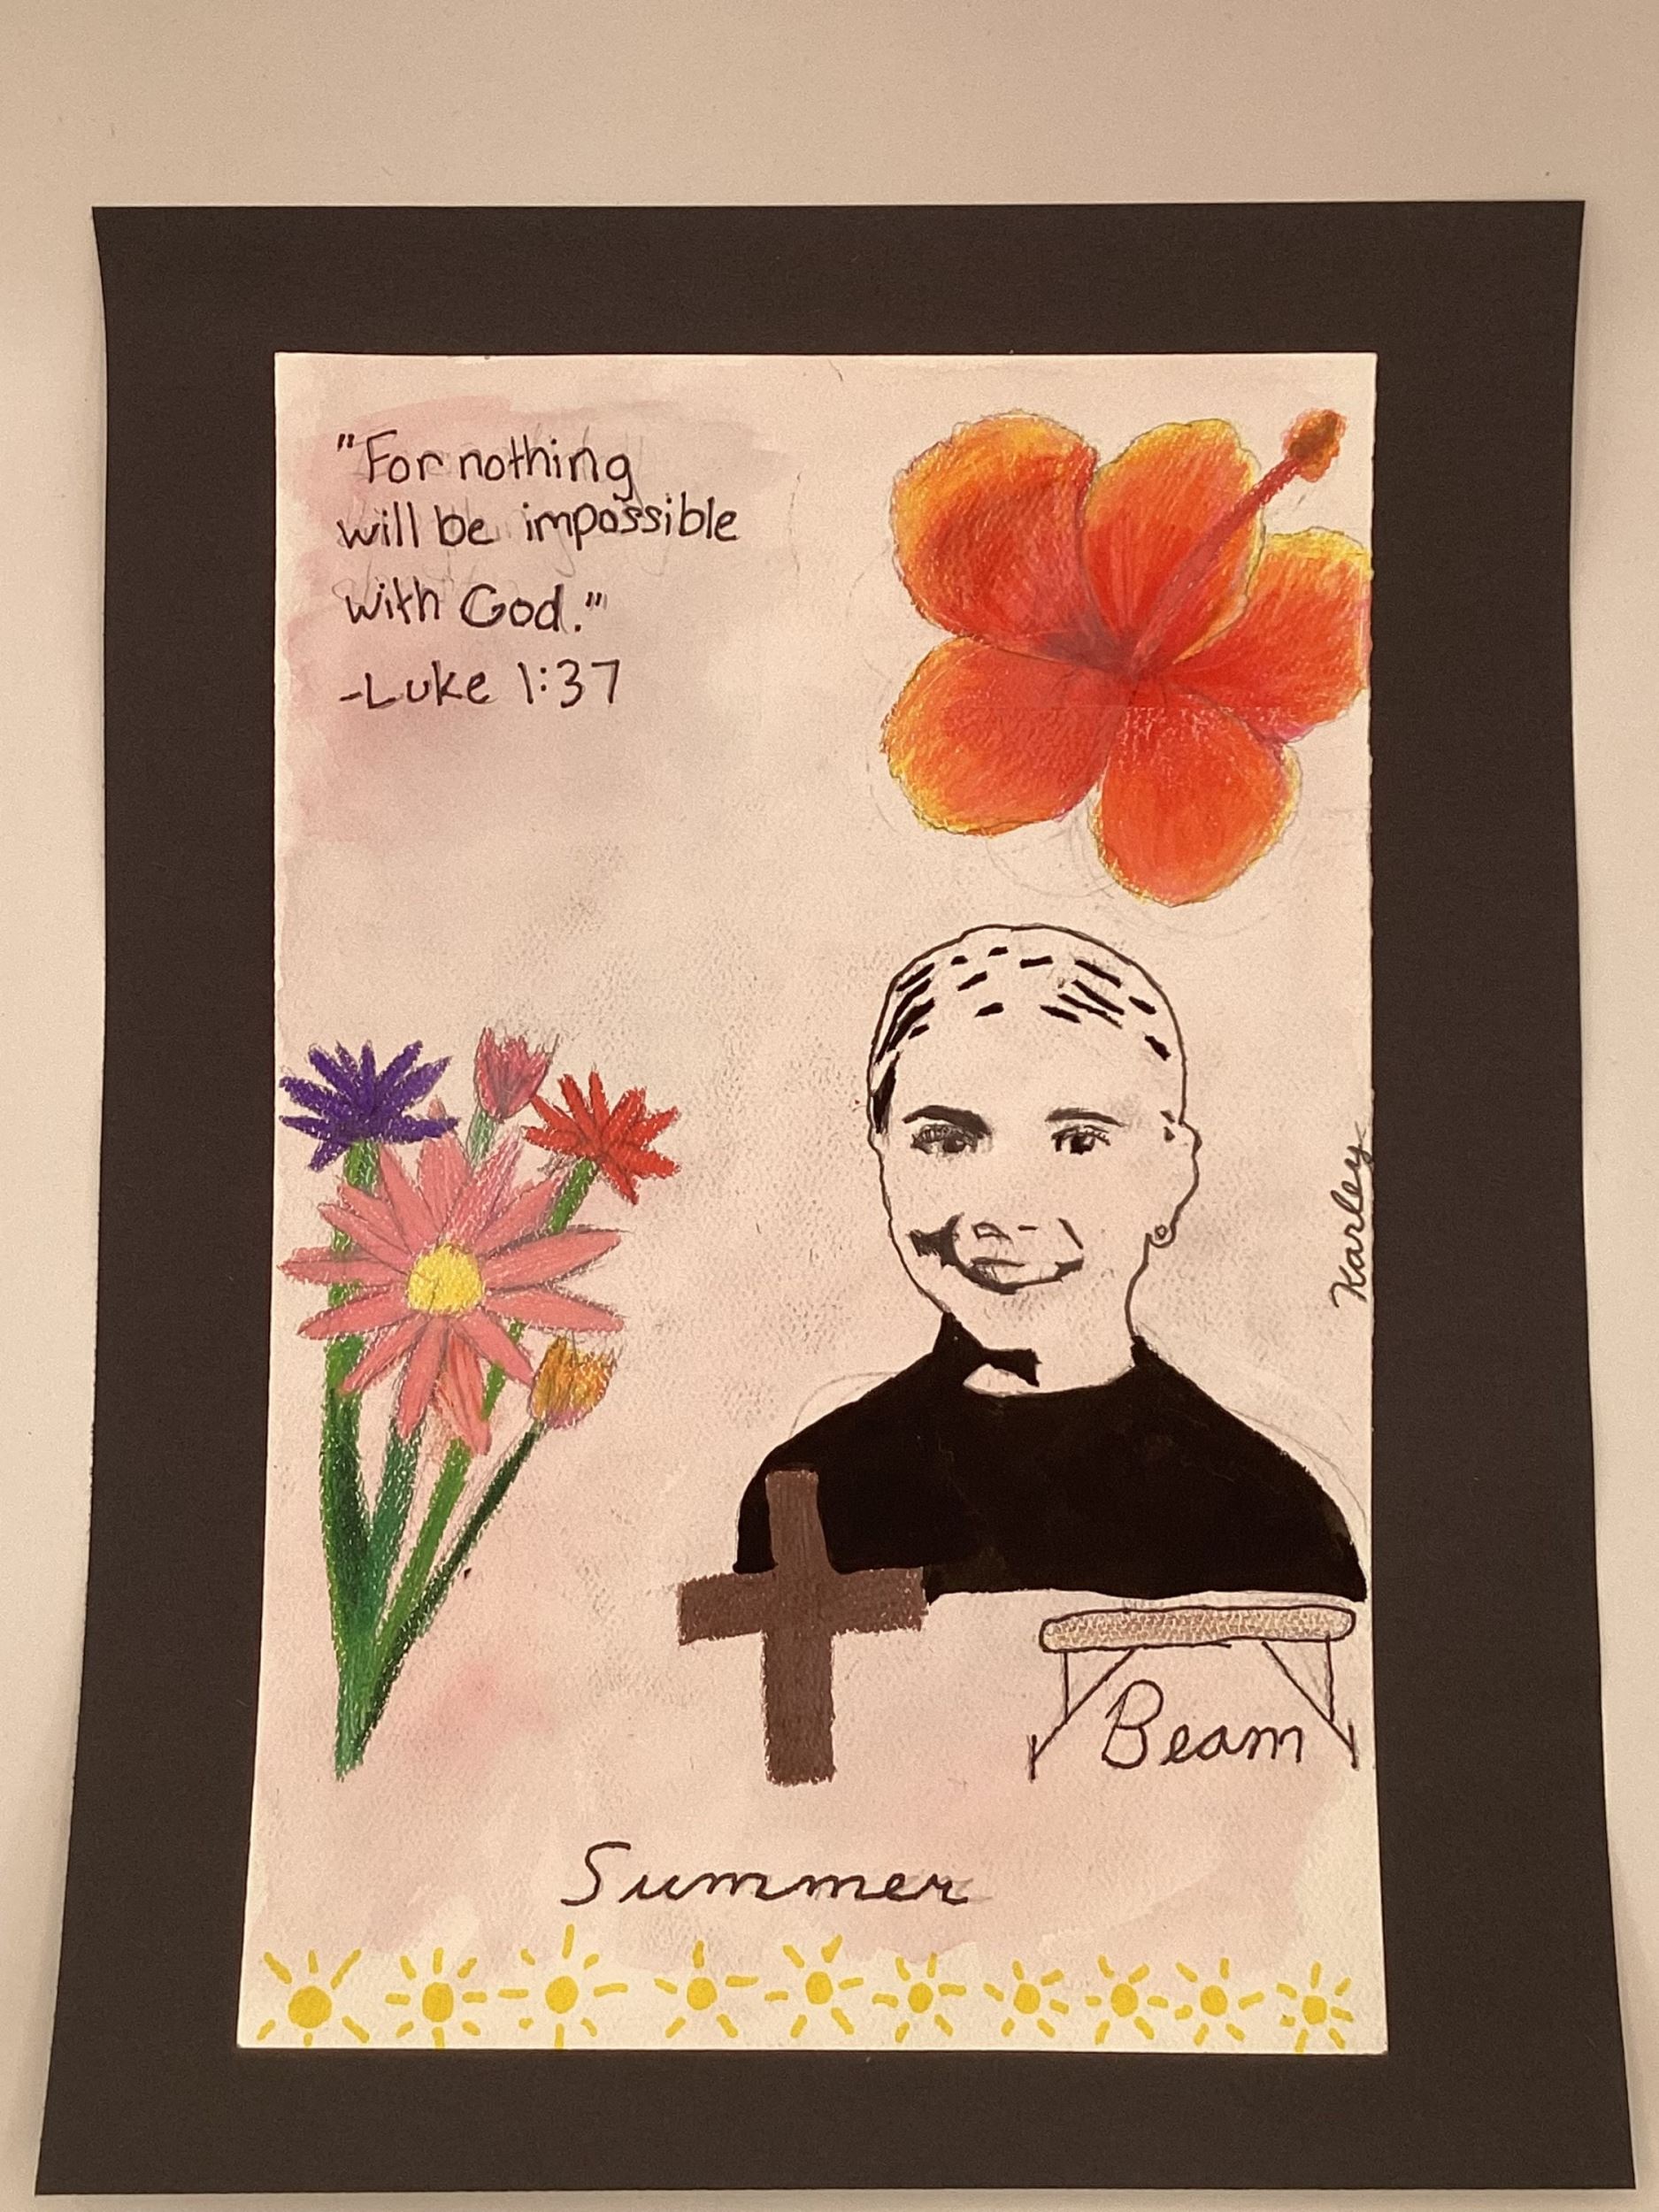 "For nothing
will be impossible
with God."
-Luke 1:37
Karley
Beam
Summer